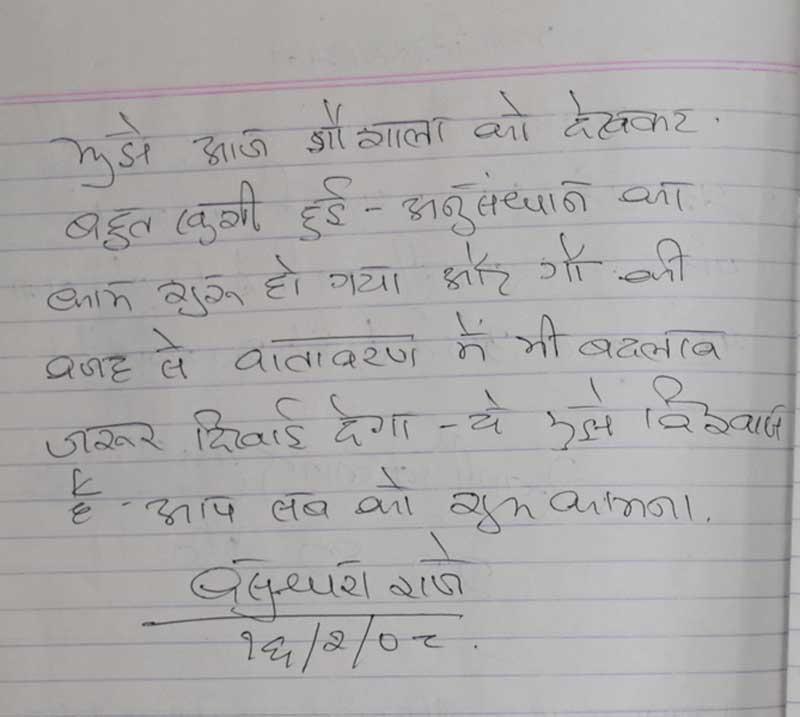 मुझे आज गौशाला को देखकर.
बहुत खुशी हुई - अनुसंधान का
काम शुरू हो गया और गौ की
वजह से वातावरण में भी बदलाव
जरूर दिखाई देगा - ये मुझे विश्वास
है - आप सब को शुभ कामना.
वसुन्धरा राजे
१६/२/०८.